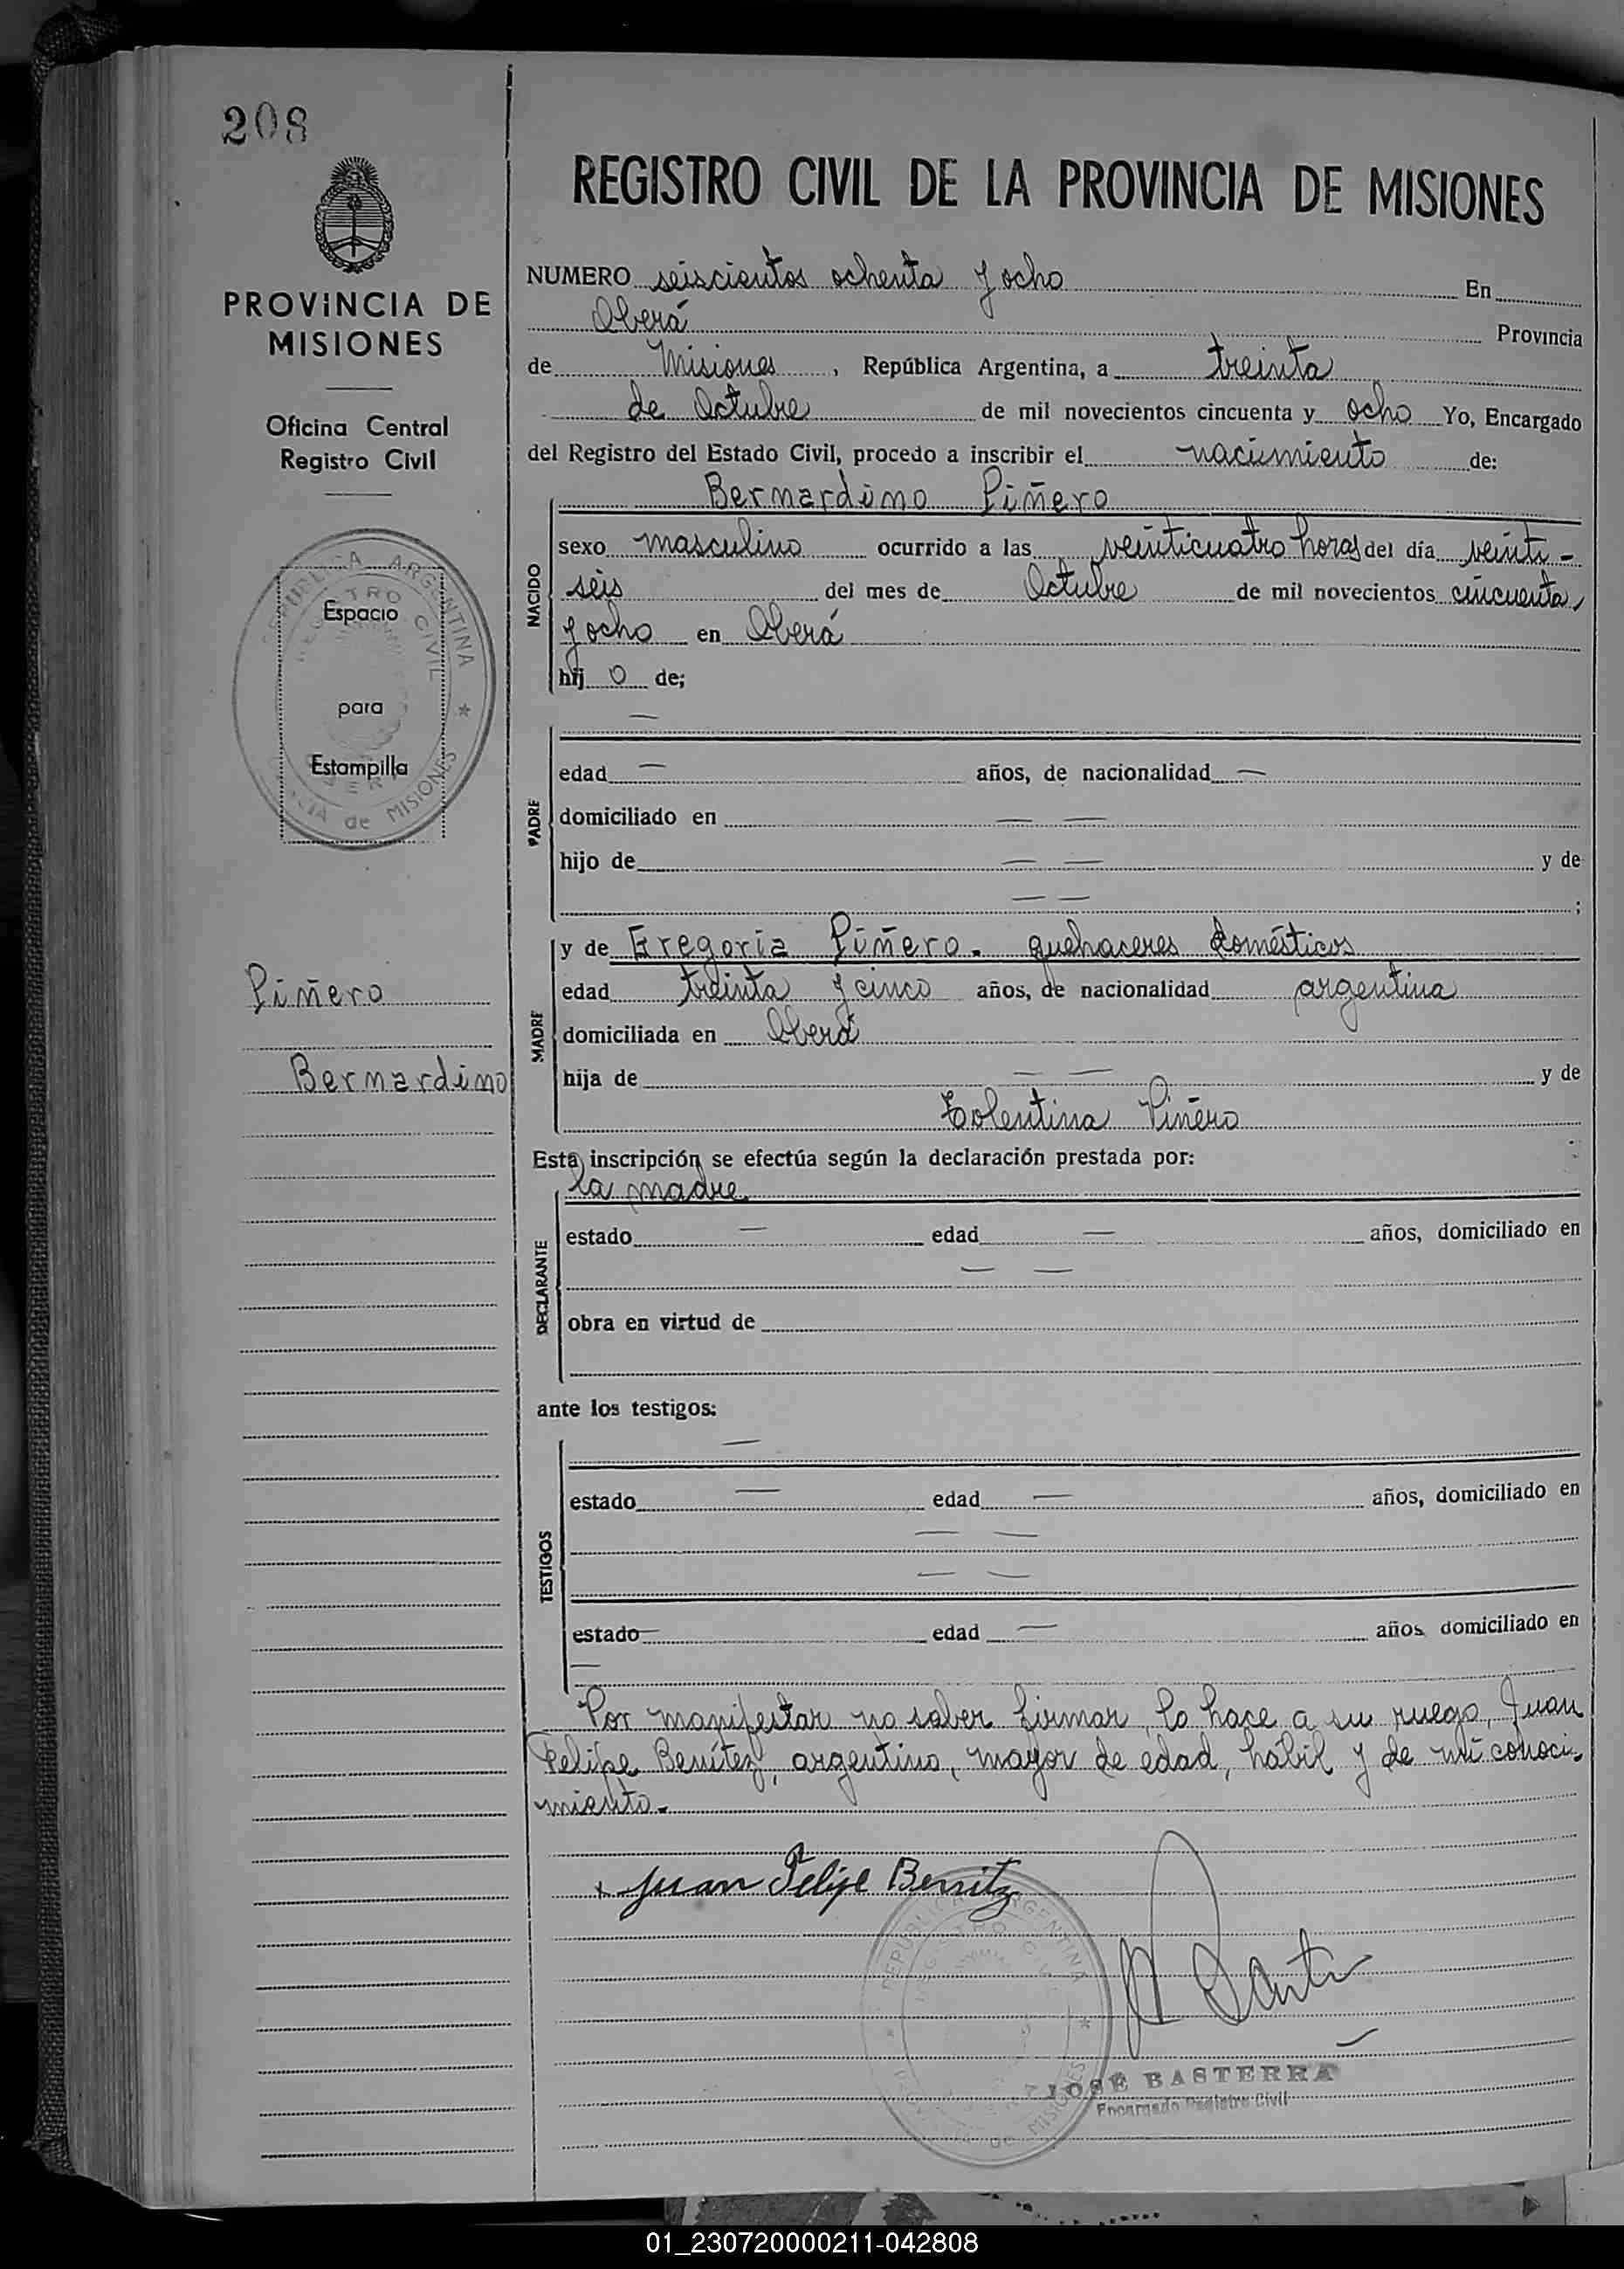 208
PROVINCIA DE
MISIONES
Oficina Central
Registro Civil
REPUBLICA ARGENTINA
REGISTRO CIVIL
Espacio
para
Estampilla
de MISIONES
Piñero
Bernardino
REGISTRO CIVIL DE LA PROVINCIA DE MISIONES
NUMERO seiscientos ochenta y ocho En
Oberá Provincia
de Misiones, República Argentina, a treinta
de Octubre de mil novecientos cincuenta y ocho Yo, Encargado
del Registro del Estado Civil, procedo a inscribir el nacimiento de:
Bernardino Piñero
NACIDO
sexo masculino ocurrido a las veinticuatro horas del día veinti-
seis del mes de Octubre de mil novecientos cincuenta
y ocho en Oberá
hij o de;
—
PADRE
edad — años, de nacionalidad —
domiciliado en — —
hijo de — — y de
— — ;
MADRE
y de Gregoria Piñero. quehaceres domésticos
edad treinta y cinco años, de nacionalidad argentina
domiciliada en Oberá
hija de — — y de
Tolentina Piñero
Esta inscripción se efectúa según la declaración prestada por:
la madre
DECLARANTE
estado — edad — años, domiciliado en
— —
obra en virtud de
ante los testigos:
—
TESTIGOS
estado — edad — años, domiciliado en
— —
— —
estado — edad — años domiciliado en
—
Por manifestar no saber firmar, lo hace a su ruego, Juan
Felipe Benítez, argentino, mayor de edad, hábil y de mi conoci-
miento.-
x Juan Felipe Benitz
REPUBLICA ARGENTINA
REGISTRO CIVIL
de MISIONES
JOSE BASTERRA
Encargado Registro Civil
01_230720000211-042808